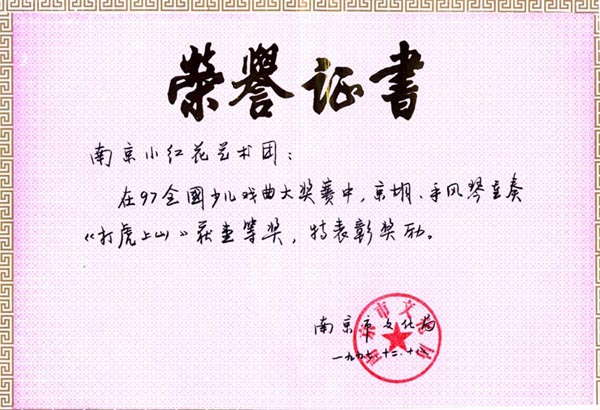 榮譽证書
南京小红花艺术团：
在97全國少儿戏曲大奖赛中,京胡、手风琴重奏
《打虎上山》获壹等奖，特表彰奖励。
南京市文化局
一九九七.十二.十